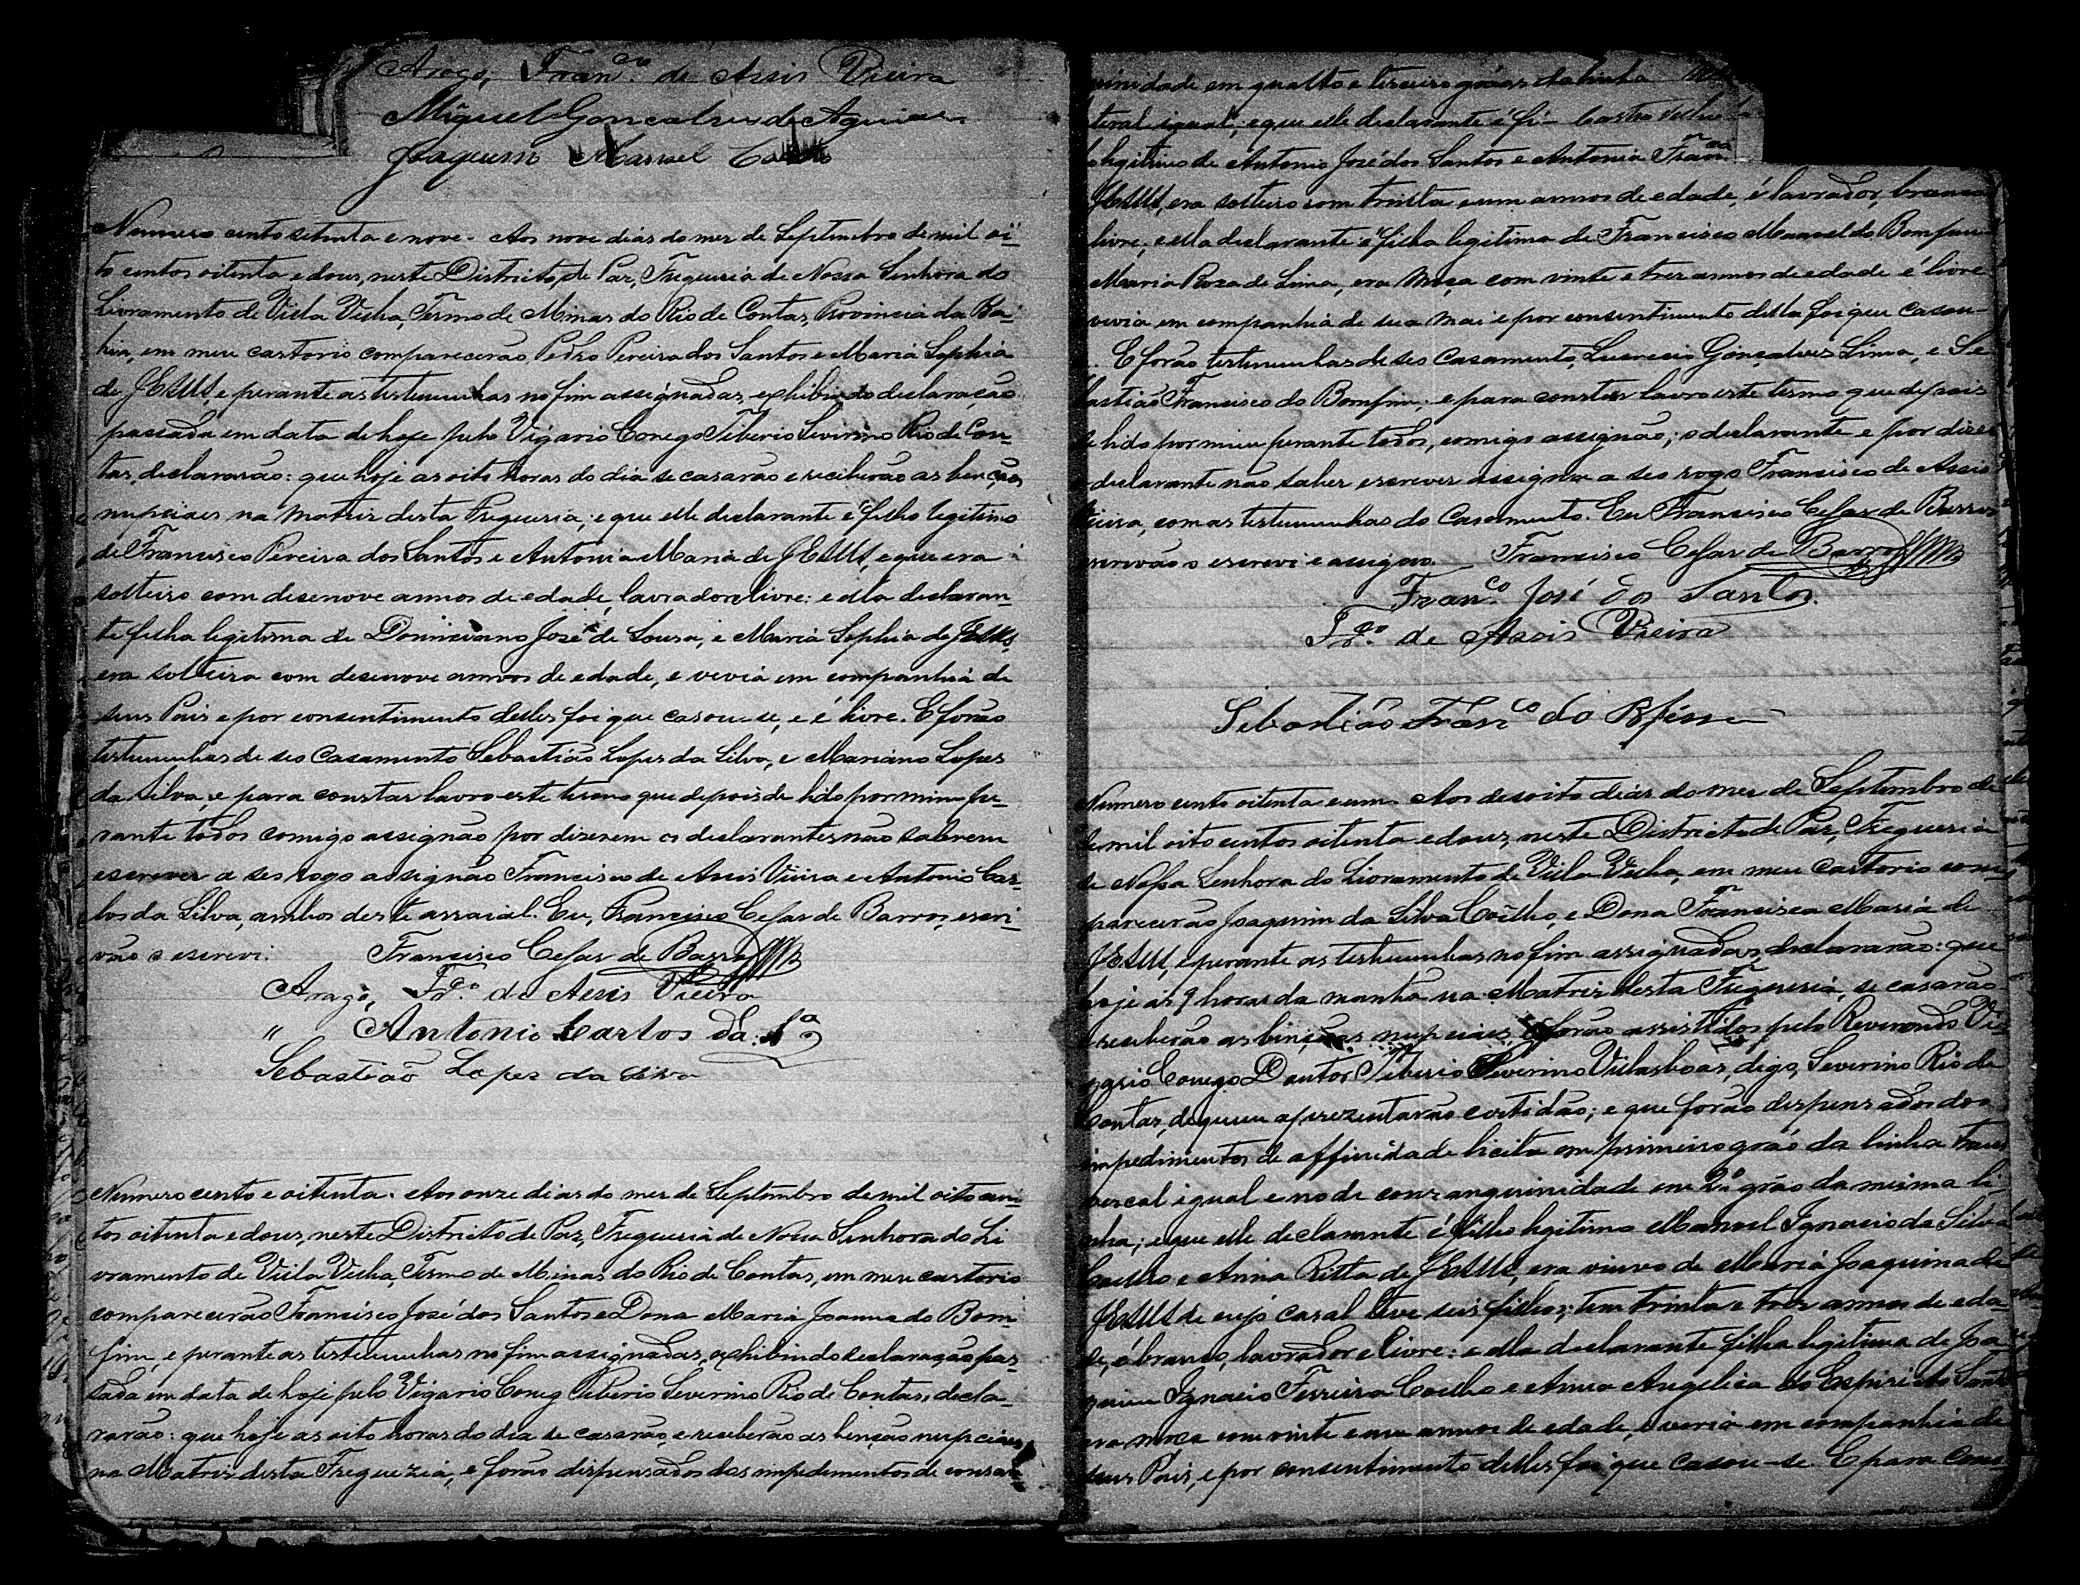 Arogo, Fran.co de Assis Vieira
Miguel Gonçalves de Aguiar
Joaquim Manoel
Numero cento setenta e nove. Aos nove dias do mez de Septembro de mil oi-
to centos oitenta e dous, neste Districto de Paz, Freguesia de Nossa Senhora do
Livramento de Villa Velha, Termo de Minas do Rio de Contas, Provincia da Ba-
hia, em meu cartorio comparecerão Pedro Pereira dos Santos e Maria Sophia
de JESUS e perante as testemunhas no fim assignadas, exhibindo declaração
passada em data de hoje pelo Vigario Conego Tiberio Severino Rio de Con-
tas, declararão: que hoje as oito horas do dia se casarão e receberão as benções
nupciaes na Matriz desta Freguesia; e que elle declarante é filho legitimo
de Francisco Pereira dos Santos e Antonia Maria de JESUS, e que era
solteiro com desenove annos de edade, lavrador e livre: e ella declaran-
te filha legitima de Dominciano José de Sousa, e Maria Sophia de JESUS,
era solteira com desenove annos de edade, e vivia em companhia de
seus Pais e por consentimento delles foi que casou-se, e é livre. E forão
testemunhas de seo casamento Sebastião Lopes da Silva, e Mariano Lopes
da Silva, e para constar lavro este termo que depois de lido por mim pe-
rante todos comigo assignão por dizerem os declarantes não saberem
escrever a seo rogo assignão Francisco de Assis Vieira e Antonio Car-
los da Silva, ambos deste arraial. Eu, Francisco Cesar de Barros, escri-
vão o escrevi. Francisco Cesar de Barros
Arogo, Fr.co de Assis Vieira
" Antonio Carlos da S.a
Sebastião Lopes da Silva
Numero cento e oitenta. Aos onze dias do mez de Septembro de mil oito cen-
tos oitenta e dous, neste Districto de Paz, Freguesia de Nossa Senhora do Li
vramento de Villa Velha, Termo de Minas do Rio de Contas, em meu cartorio
comparecerão Francisco José dos Santos e Dona Maria Joanna do Bom-
fim, e perante as testemunhas no fim assignadas, exhibindo declaração pas-
sada em data de hoje pelo Vigario Coneg Tiberio Severino Rio de Contas, decla-
rarão: que hoje as oito horas do dia se casarão, e receberão as benção nupciaes
na Matriz desta Freguezia, e forão dispensados dos impedimentos de consan-
guinidade em quatto e terceiro gráos da linha
teral igual; e que elle declarante é fi-
legitimo de Antonio José dos Santos e Antonia Fran.ca
JESUS, era solteiro com trinta e um annos de edade, é lavrador, branco
livre; e ella declarante é filha legitima de Francisco Manoel do Bomfim
Maria Roza de Lima, era moça com vinte e trez annos de edade é livre
vivia em companhia de sua mai e por consentimento della foi que casou-
. E forão testemunhas de seo casamento, Lucrecio Gonsalves Lima, e Se
bastião Francisco do Bomfim; e para constar lavro este termo que depois
de lido por mim perante todos, comigo assignão; o declarante e por dizer
declarante não saber escrever assigna a seo rogo Francisco de Assis
Vieira, com as testemunhas do casamento. Eu Francisco Cesar de Barros
escrivão o escrevi e assigno. Francisco Cesar de Barros
Fran.co José dos Santos.
Fr.co de Assis Vieira
Sebastião Fran.co do Bfim
Numero cento oitenta e um. Aos desoito dias do mez de Septembro de
de mil oito centos oitenta e dous, neste Districto de Paz, Freguesia
de Nossa Senhora do Livramento de Villa Velha, em meu cartorio com-
parecerão Joaquim da Silva Coêlho, e Dona Francisca Maria de
JESUS, e perante as testemunhas no fim assignadas, declararão: que
hoje ás 9 horas da manhã na Matriz desta Freguesia, se casarão
e receberão as benções nupciaes, e forão assistidos pelo Reverendo Vi-
gario Conego Doutor Tiberio Severino Vilasboas, digo, Severino Rio de
Contas, de quem aprezentarão certidão; e que forão dispensados dos
impedimentos de affinidade licita em primeiro gráo da linha trans
versal igual e no de consanguinidade em 2.º gráo da mesma li-
nha; e que elle declarante é filho legitimo Manoel Ignacio da Silva
Coelho e Anna Ritta de JESUS, era viuvo de Maria Joaquina de
JESUS de cujo casal teve seis filhos; tem trinta e trez annos de eda-
de, é branco, lavrador e livre: e ella declarante filha legitima de Joa
quim Ignacio Ferreira Coelho e Anna Angelica do Espirito Santo
era moça com vinte e um annos de edade, e vevia em companhia de
seus Pais, e por consentimento delles foi que casou-se. E para cons